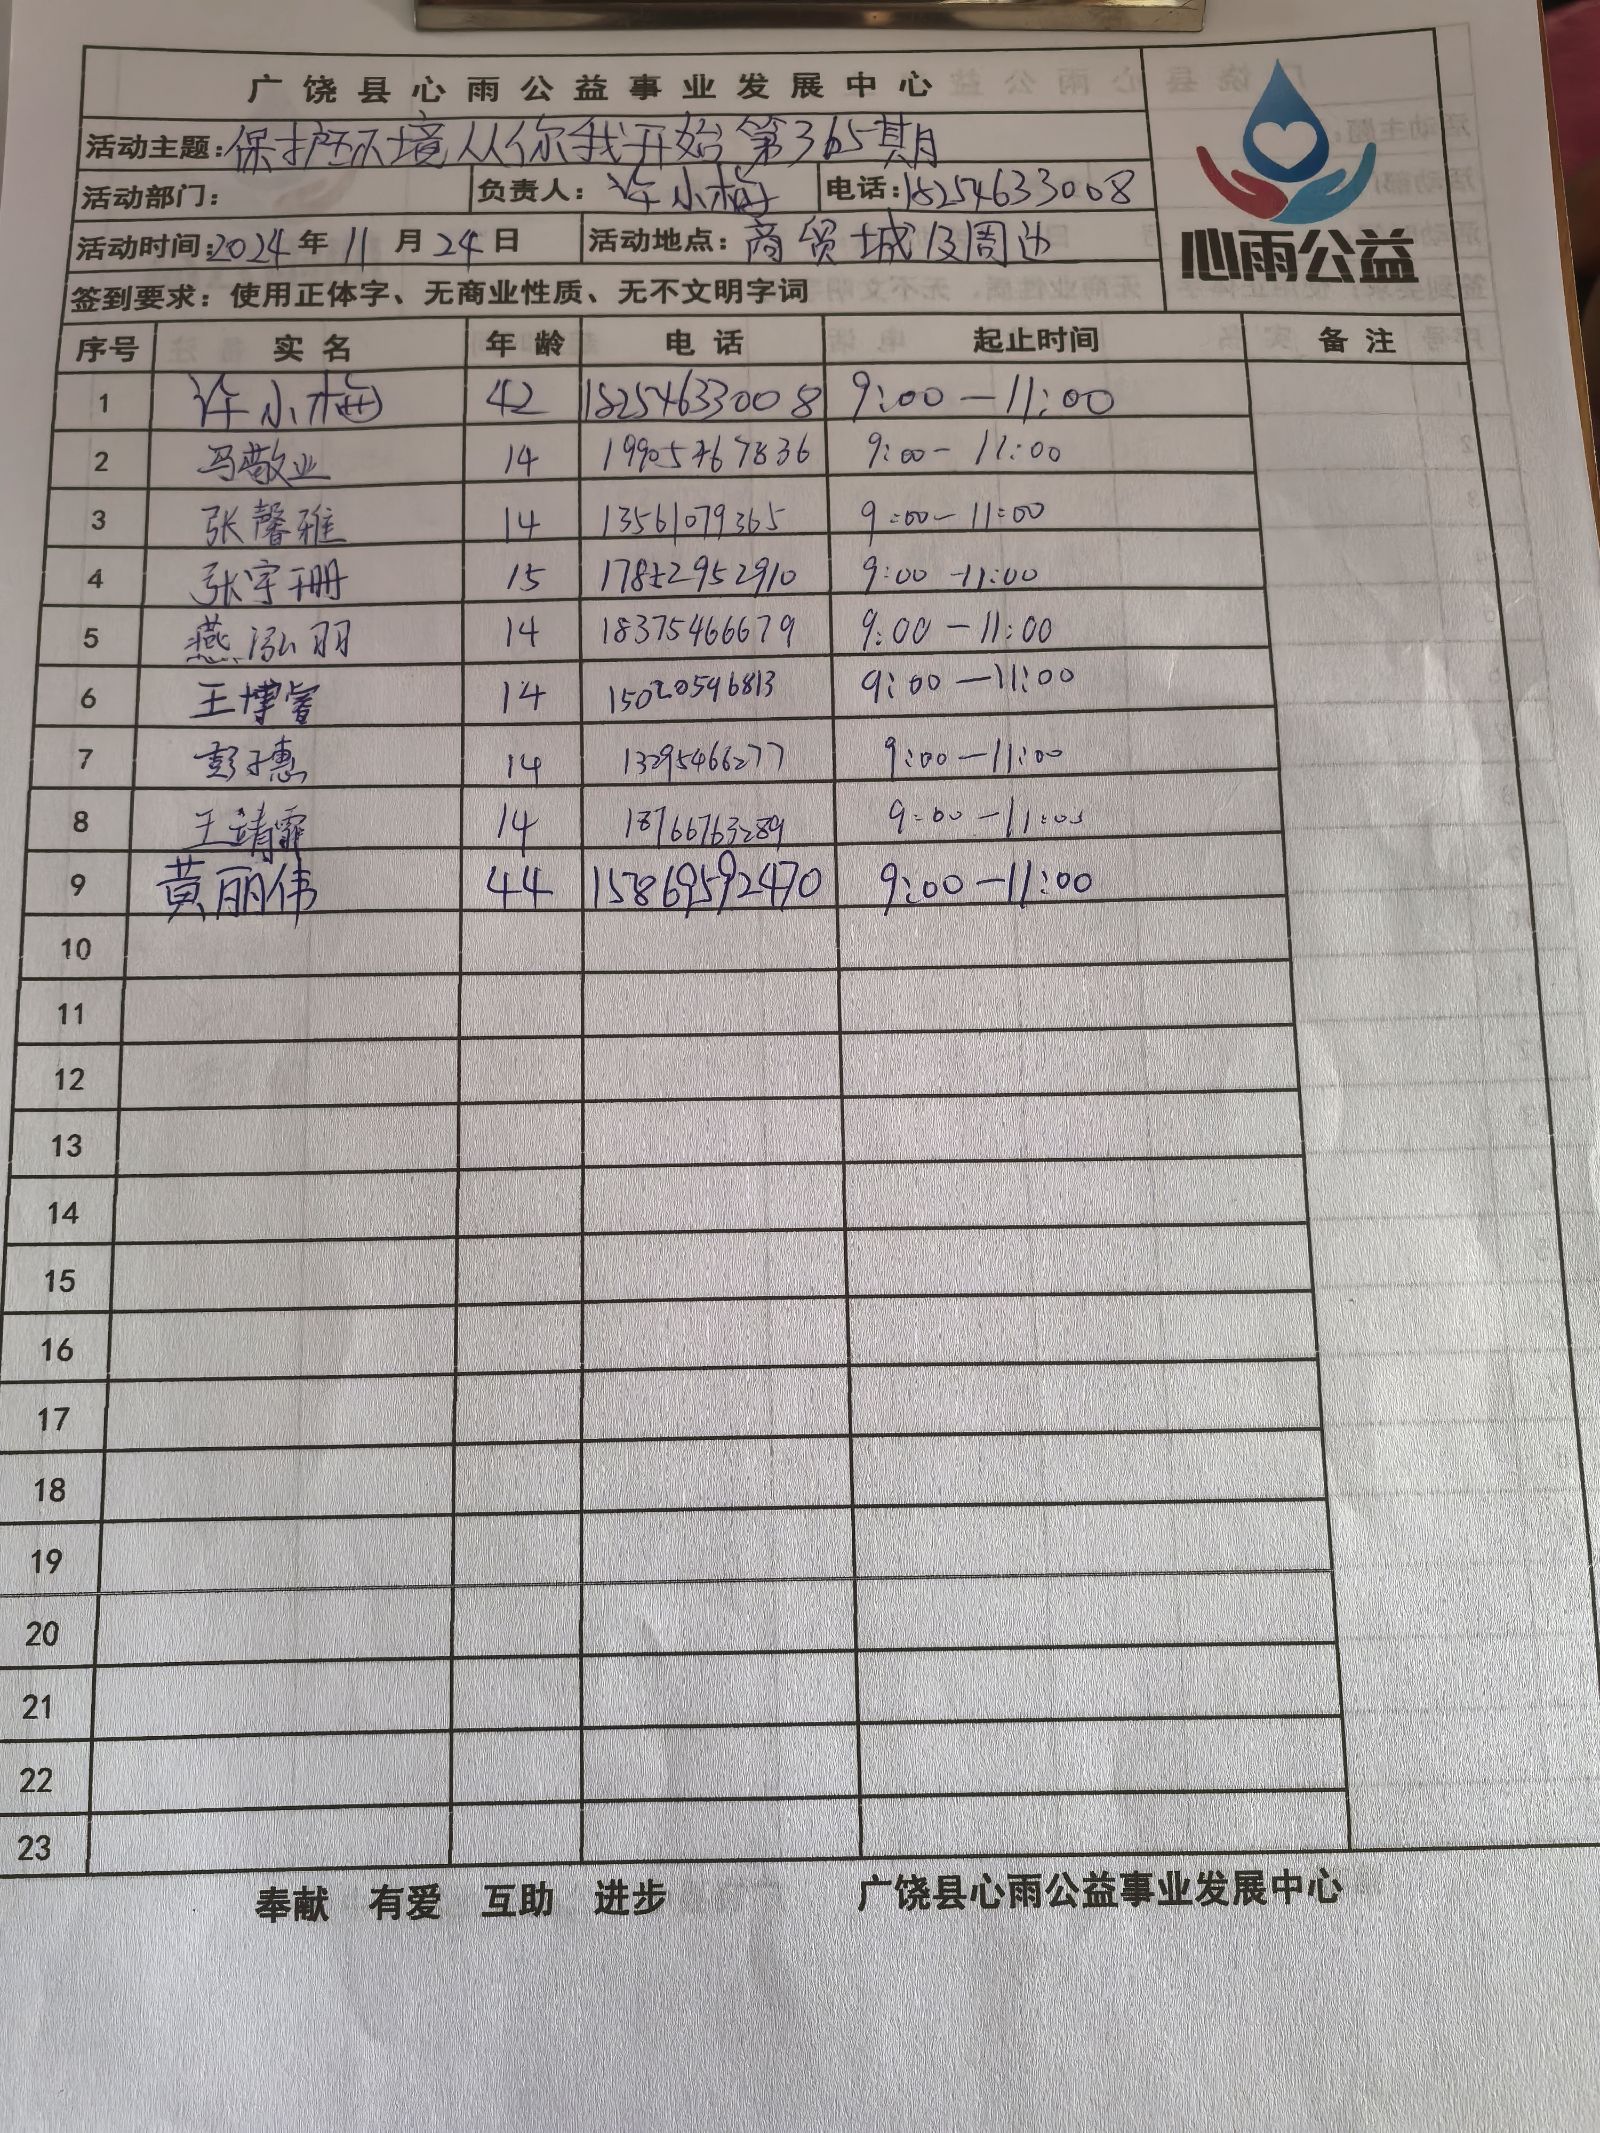 广饶县心雨公益事业发展中心
心雨公益
活动主题：保护环境从你我开始第365期
活动部门： 负责人：许小梅 电话：18254633008
活动时间：2024年11月24日 活动地点：商贸城及周边
签到要求：使用正体字、无商业性质、无不文明字词
序号 实名 年龄 电话 起止时间 备注
1 许小梅 42 18254633008 9:00－11:00
2 马敬业 14 9:00－11:00
3 张馨雅 14 13561079365 9:00－11:00
4 张宇珊 15 17852952910 9:00－11:00
5 燕泓羽 14 18375466679 9:00－11:00
6 王博睿 14 15020596813 9:00－11:00
7 彭子惠 14 13295466277 9:00－11:00
8 王靖霏 14 18766763289 9:00－11:00
9 黄丽伟 44 15869592470 9:00－11:00
10
11
12
13
14
15
16
17
18
19
20
21
22
23
奉献 有爱 互助 进步 广饶县心雨公益事业发展中心